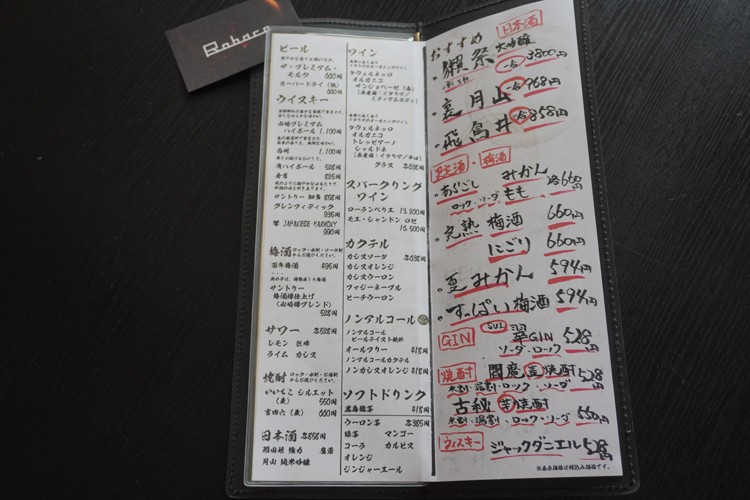 ビール
ザ・プレミアム・
モルツ 660円
スーパードライ(瓶)
660円
ウイスキー
山崎プレミアム
ハイボール 1,100円
白州 1,100円
角ハイボール 528円
サントリー 知多 858円
グレンフィディック
995円
響 JAPANESE HARMONY
990円
梅酒
ロック・水割・ソーダ割
からお選びください。
百年梅酒 495円
サントリー
梅酒樽仕上げ
(山崎樽ブレンド)
528円
サワー 各528円
レモン 巨峰
ライム カシス
焼酎
ロック・水割・お湯割
からお選びください。
いいちこ シルエット
(麦) 550円
吉四六(麦) 660円
日本酒 各858円
月山 純米吟醸
ワイン
タヴェルネッロ
オルガニコ
サンジョベーゼ(赤)
タヴェルネッロ
オルガニコ
トレッビアーノ
シャルドネ
グラス 各638円
スパークリング
ワイン
ローランペリエ 13,200円
モエ・シャンドン ロゼ
16,500円
カクテル 各638円
カシスソーダ
カシスオレンジ
カシスウーロン
ファジーネーブル
ピーチウーロン
ノンアルコール
ノンアルコール
ビールテイスト飲料
オールフリー 418円
ノンアルコールカクテル
ノンカシスオレンジ 418円
ソフトドリンク
黒烏龍茶 418円
ウーロン茶 各385円
緑茶 マンゴー
コーラ カルピス
オレンジ
ジンジャーエール
日本酒
おすすめ
獺祭 大吟醸 一合 3800円
裏月山 一合 968円
飛鳥井 一合 858円
果実酒・梅酒
あらごし みかん もも 各660円
ロック・ソーダ
完熟梅酒 660円
にごり 660円
夏みかん 594円
すっぱい梅酒 594円
GIN SUI 翠GIN 528円
ソーダ・ロック
焼酎 閻魔 麦焼酎 528円
水割・湯割・ロック・ソーダ
古秘 芋焼酎 550円
水割・湯割・ロック・ソーダ
ウィスキー ジャックダニエル 528円
※表示価格は税込み価格です。